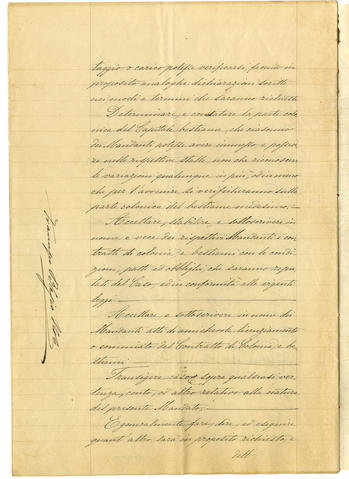 taggio o carico potesse verificarsi, facendo in
proposito analoghe dichiarazioni scritte
nei modi e termini che saranno richiesti
Determinare, e constatare la parte colo
nica del Capitale bestiame, che ciascuno
dei Mandanti potesse avere immesso, e posse
ra nelle rispettive stalle, non che riconoscere
le variazioni qualunque in più, od in meno
che per l'avvenire si verificheranno sulla
parte colonica del bestiame medesimo,
Accettare, stabilire e sottoscrivere in
nome e vece dei rispettivi Mandanti con
tratti di colonia e bestiami con le condi
zioni, patti ed obblighi, che saranno repu
tati del Caso, ed in conformità alle vigenti
leggi
Accettare, e sottoscrivere in nome dei
Mandanti atti di amichevole licenziamento
o commiato del Contratto di Colonia, e be
stiami
Transigere sopra qualsiasi ver
tenza, conto, od altro relativo alla natura
del presente Mandato,
E generalmente fare, dire, ed eseguire
quant'altro sarà in proposito richiesto, e
dell